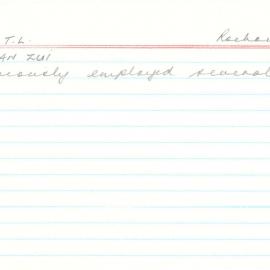 T.L. Rochar
AN ZUI
iously employed several